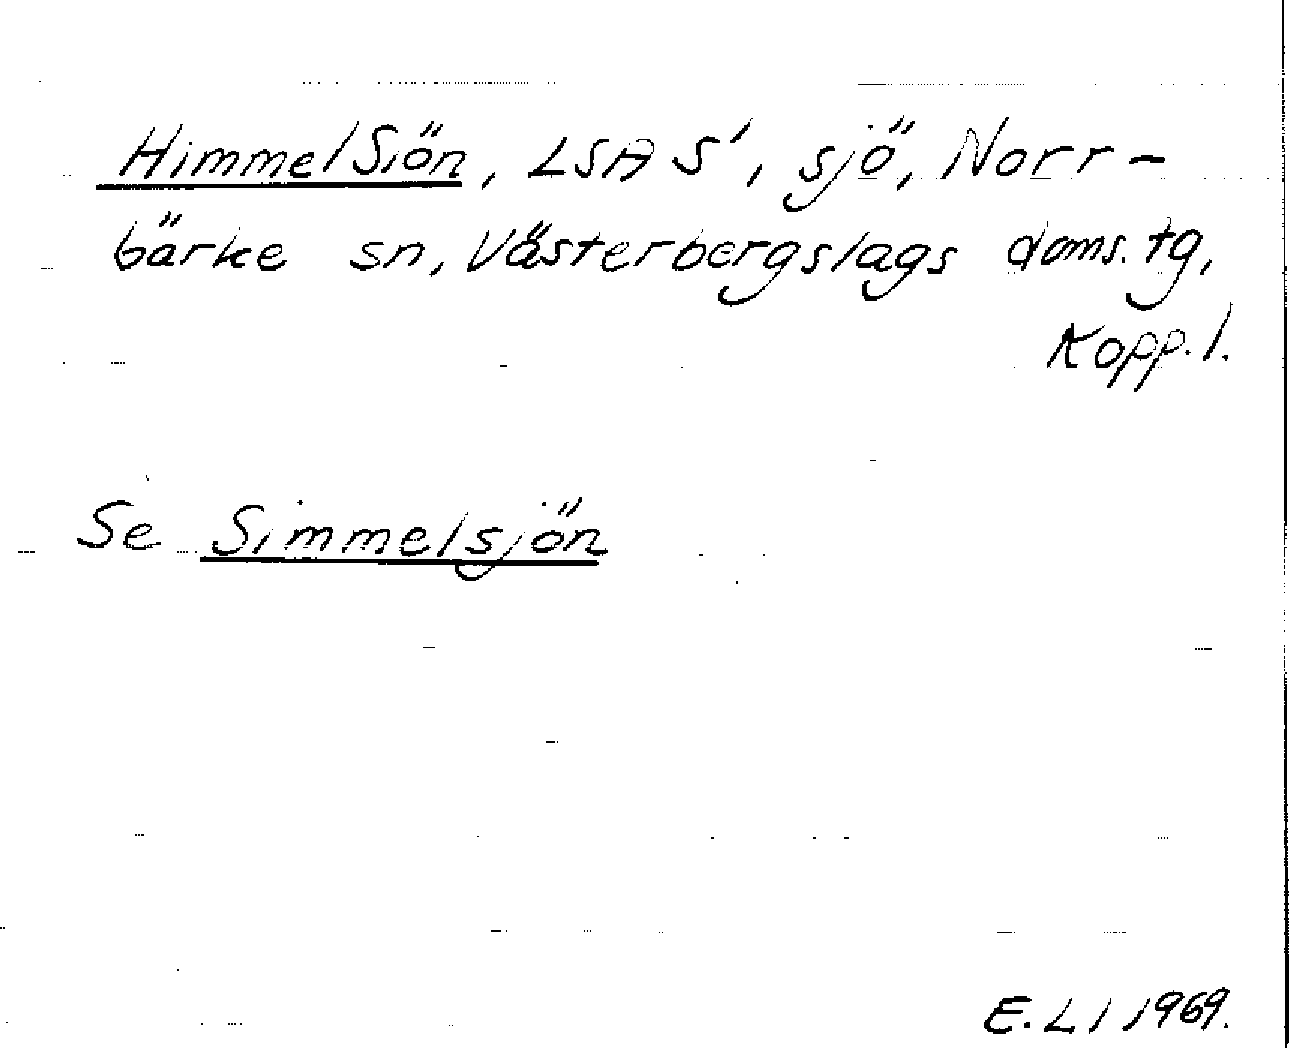 HimmelSiön, LSA S', sjö, Norr-
bärke sn, Västerbergslags doms. tg,
Kopp. l.
Se Simmelsjön
E. L l 1969.